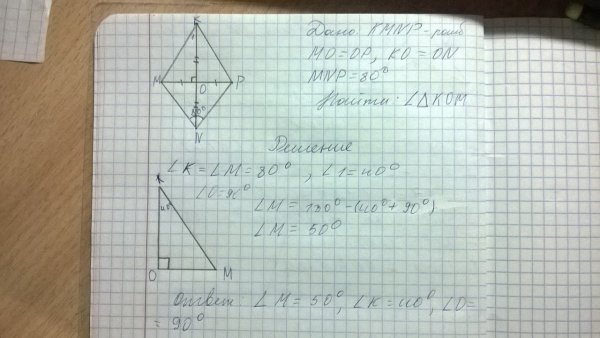 K
1
M
O
P
80°
N
Дано: KMNP - ромб
MO=OP, KO=ON
MNP=80°
Найти: ∠△KOM
Решение
∠K=∠M=80°, ∠1=40°
∠O=90°
∠M=180°-(40°+90°)
∠M=50°
K
40°
O
M
Ответ: ∠M=50°, ∠K=40°, ∠O=
=90°